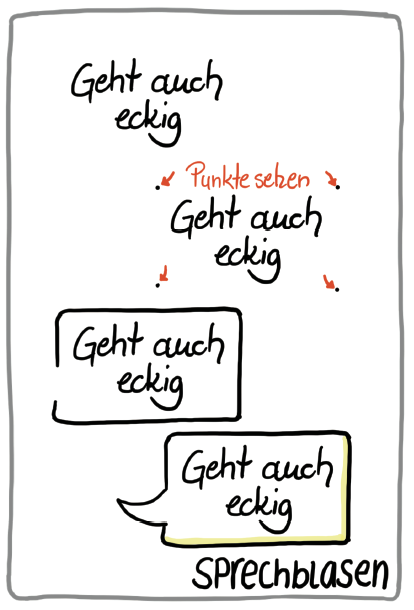 Geht auch
eckig
Punkte setzen
Geht auch
eckig
Geht auch
eckig
Geht auch
eckig
SPRECHBLASEN